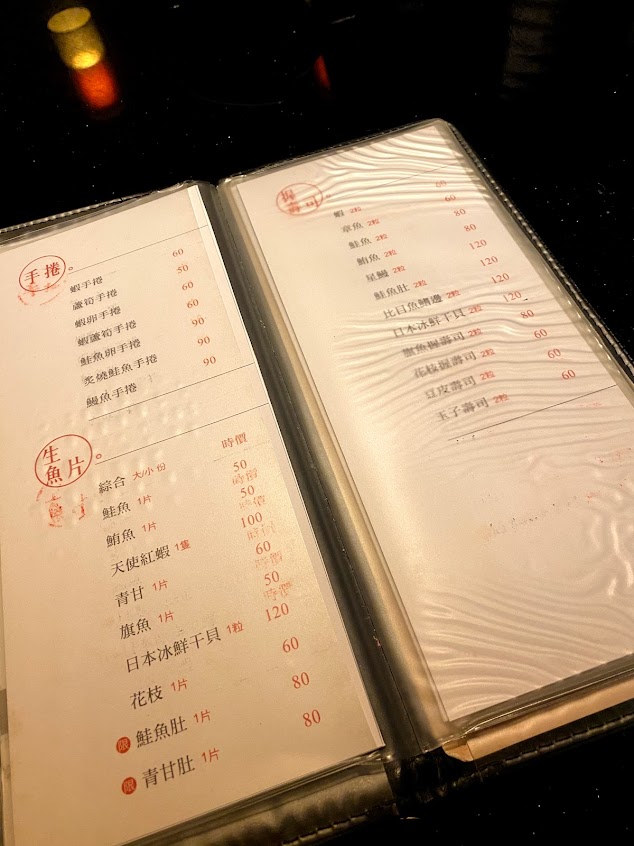 手捲。
蝦手捲 60
蘆筍手捲 50
蝦卵手捲 60
蝦蘆筍手捲 60
鮭魚卵手捲 90
炙燒鮭魚手捲 90
鰻魚手捲 90
生魚片。
綜合 大/小 份 時價
鮭魚 1片 50
鮪魚 1片 50
天使紅蝦 1隻 100
青甘 1片 60
旗魚 1片 50
日本冰鮮干貝 1粒 120
花枝 1片 60
限 鮭魚肚 1片 80
限 青甘肚 1片 80
握壽司。
蝦 2粒 60
章魚 2粒 60
鮭魚 2粒 80
鮪魚 2粒 80
星鰻 2粒 120
鮭魚肚 2粒 120
比目魚鰭邊 2粒 120
日本冰鮮干貝 2粒 120
旗魚握壽司 2粒 80
花枝握壽司 2粒 60
豆皮壽司 2粒 60
玉子壽司 2粒 60